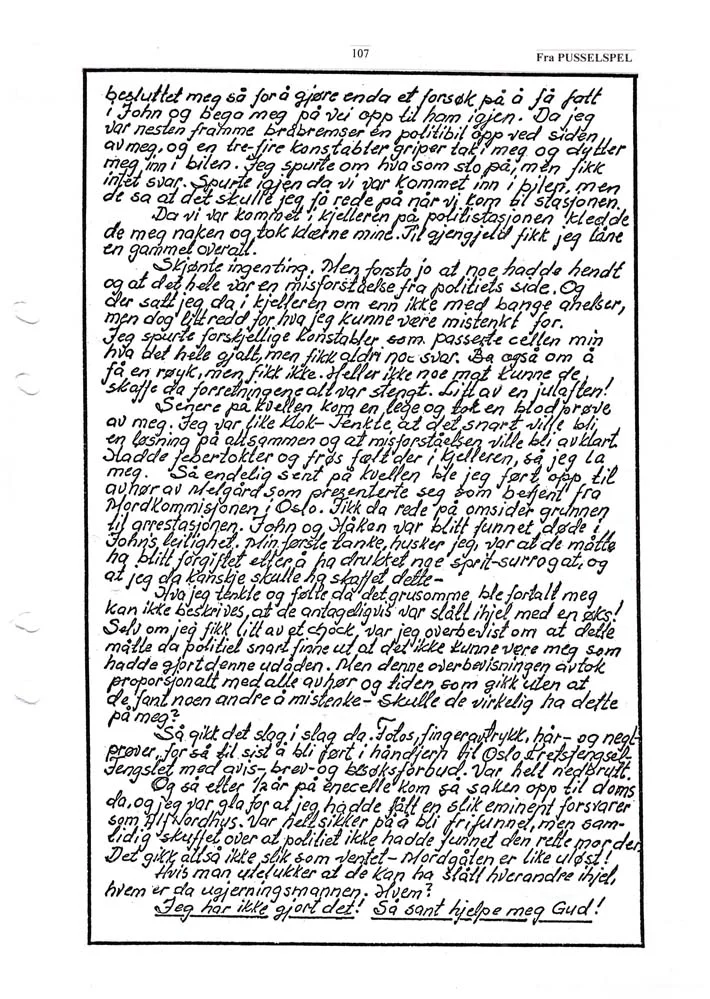 107
Fra PUSSELSPEL
besluttet meg så for å gjøre enda et forsøk på å få fatt
i John og bega meg på vei opp til ham igjen. Da jeg
var nesten framme bråbremser en politibil opp ved siden
av meg, og en tre-fire konstabler griper tak i meg og dytter
meg inn i bilen. Jeg spurte om hva som sto på, men fikk
intet svar. Spurte igjen da vi var kommet inn i bilen, men
de sa at det skulle jeg få rede på når vi kom til stasjonen.
Da vi var kommet i kjelleren på politistasjonen kledde
de meg naken og tok klærne mine. Til gjengjeld fikk jeg låne
en gammel overall.
Skjønte ingenting. Men forsto jo at noe hadde hendt
og at det hele var en misforståelse fra politiets side. Og
der satt jeg da i kjelleren om enn ikke med bange anelser,
men dog litt redd for hva jeg kunne være mistenkt for.
Jeg spurte forskjellige konstabler som passerte cellen min
hva det hele gjalt, men fikk aldri noe svar. Ba også om å
få en røyk, men fikk ikke. Heller ikke noe mat kunne de
skaffe da forretningene alt var stengt. Litt av en julaften!
Senere på kvellen kom en lege og tok en blodprøve
av meg. Jeg var like klok- Tenkte at det snart ville bli
en løsning på altsammen og at misforståelsen ville bli avklart.
Hadde febertokter og frøs fælt der i kjelleren, så jeg la
meg. Så endelig sent på kvellen ble jeg ført opp til
avhør av Melgård som presenterte seg som betjent fra
Mordkommisjonen i Oslo. Fikk da rede på omsider grunnen
til arrestasjonen. John og Håkan var blitt funnet døde i
John's leilighet. Min første tanke, husker jeg, var at de måtte
ha blitt forgiftet etter å ha drukket noe sprit-surrogat, og
at jeg da kanskje skulle ha skaffet dette-
Hva jeg tenkte og følte da det grusomme ble fortalt meg
kan ikke beskrives, at de antageligvis var slått ihjel med en øks!
Selv om jeg fikk litt av et chock, var jeg overbevist om at dette
måtte da politiet snart finne ut at det ikke kunne være meg som
hadde gjort denne udåden. Men denne overbevisningen avtok
proporsjonalt med alle avhør og tiden som gikk uten at
de fant noen andre å mistenke- skulle de virkelig ha dette
på meg?
Så gikk det slag i slag da. Fotos, fingeravtrykk, hår- og negl-
prøver, for så til sist å bli ført i håndjern til Oslo Kretsfengsel-
Fengslet med avis- brev- og besøksforbud. Var helt nedbrutt.
Og så etter 1/2 år på enecelle kom så saken opp til doms
da, og jeg var gla for at jeg hadde fått en slik eminent forsvarer
som Alf Nordhus. Var hellsikker på å bli frifunnet, men sam-
tidig skuffet over at politiet ikke hadde funnet den rette morder.
Det gikk altså ikke slik som ventet- Mordgåten er like uløst!
Hvis man utelukker at de kan ha slått hverandre ihjel,
hvem er da ugjerningsmannen. Hvem?
Jeg har ikke gjort det! Så sant hjelpe meg Gud!